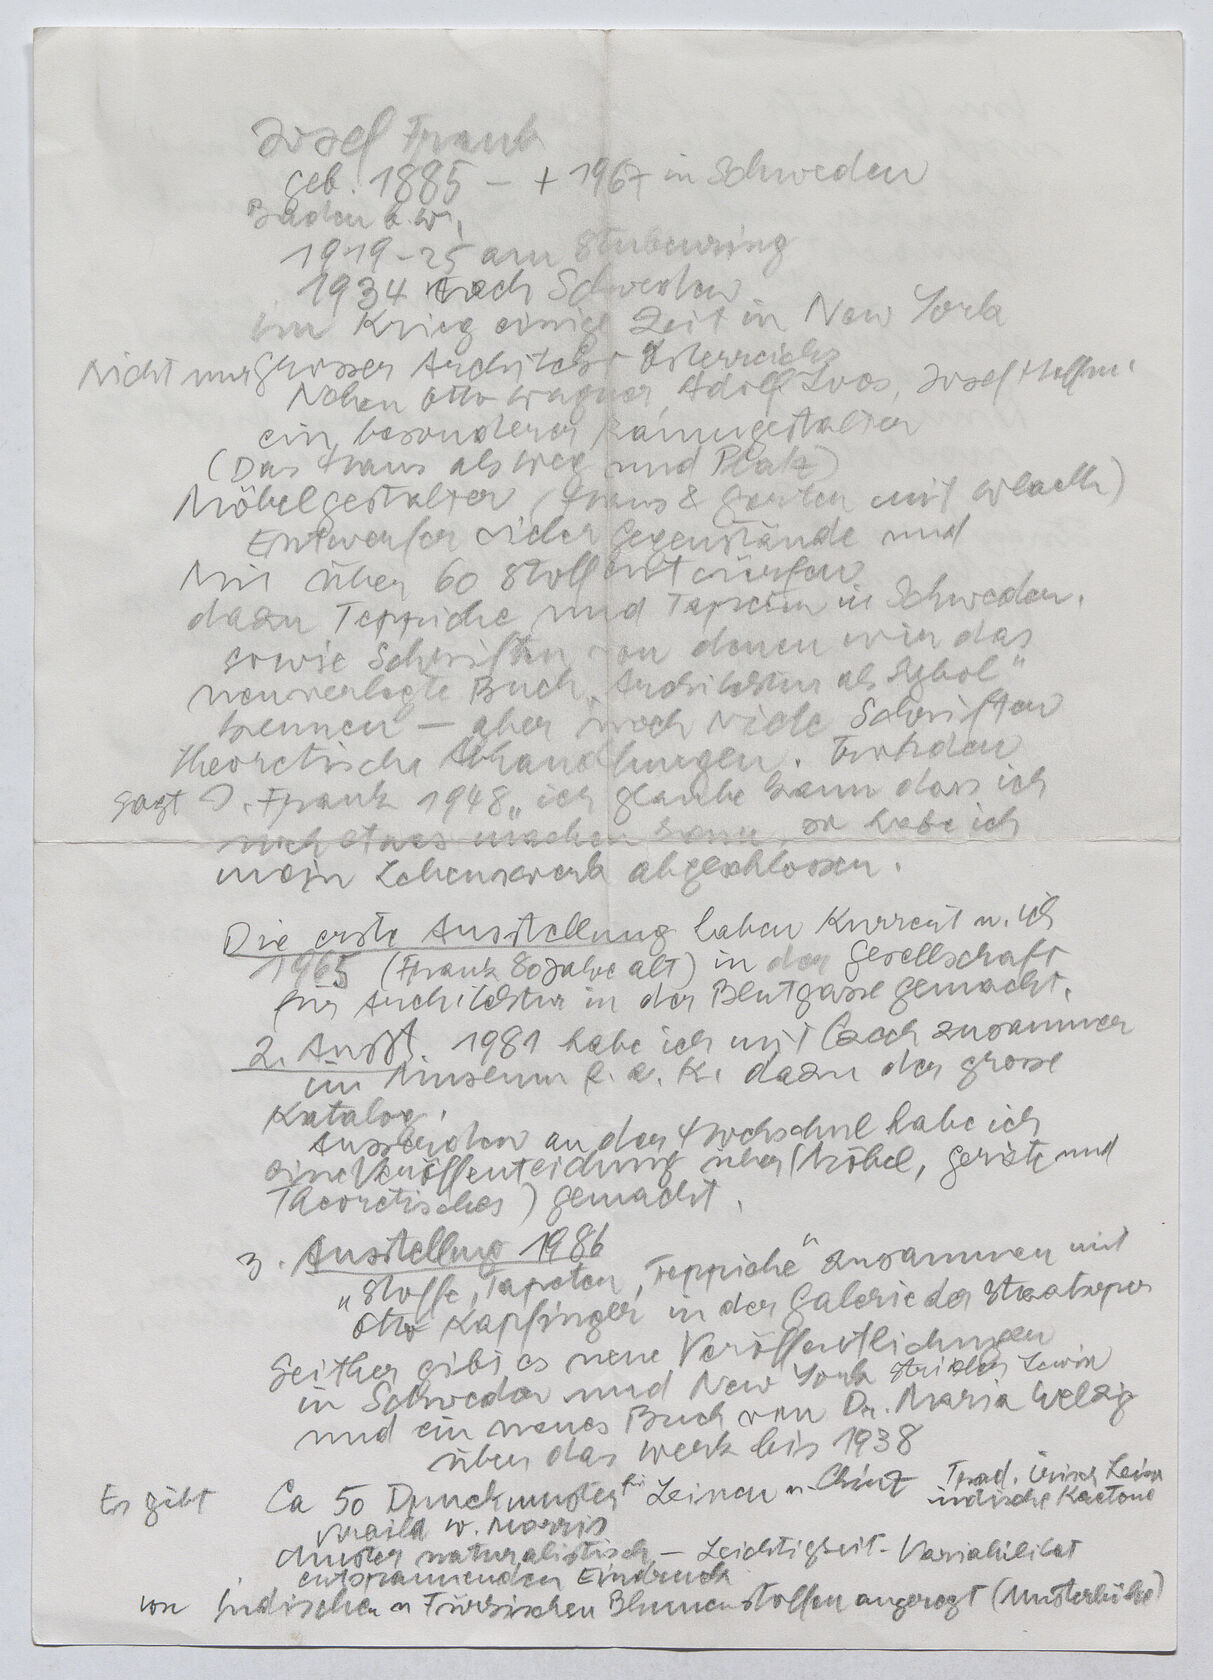 Josef Frank
geb. 1885 – + 1967 in Schweden
Baden b. W.
1919-25 am Stubenring
1934 nach Schweden
im Krieg einige Zeit in New York
Nicht nur grosser Architekt Österreichs
Neben Otto Wagner, Adolf Loos, Josef Hoffm.
ein besonderer Raumgestalter
(Das Haus als Weg und Platz)
Möbelgestalter (Haus & Garten mit Wlach)
Entwerfer vieler Gegenstände und
Mit über 60 Stoffentwürfen
dazu Teppiche und Tapeten in Schweden.
sowie Schriften von denen wir das
neuverlegte Buch „Architektur als Sybol"
kennen – aber noch viele Schriften
theoretische Abhandlungen. Trotzdem
sagt J. Frank 1948 „ich glaube kaum dass ich
noch etwas machen kann, so habe ich
mein Lebenswerk abgeschlossen.
Die erste Ausstellung haben Kurrent u. ich
1965 (Frank 80 Jahre alt) in der Gesellschaft
für Architektur in der Blutgasse gemacht.
2. Ausst. 1981 habe ich mit Czech zusammen
im Museum f. a. K. dazu der grosse
Katalog.
Ausserdem an der Hochschul habe ich
eine Veröffentlichung über (Möbel, Geräte und
Theoretisches) gemacht.
3. Ausstellung 1986
„Stoffe, Tapeten, Teppiche" zusammen mit
Otto Kapfinger in der Galerie der Staatsoper
Seither gibt es neue Veröffentlichungen
in Schweden und New York
und ein neues Buch von Dr. Maria Welzig
über das Werk bis 1938
Es gibt Ca 50 Druckmuster für Leinen u. Chinz Trad. irisch Leinen
indische Kattone
W. Morris
Muster naturalistisch – Leichtigkeit – Variabilität
entspannenden Eindruck
von Indischen u Türkischen Blumenstoffen angeregt (Musterbücher)